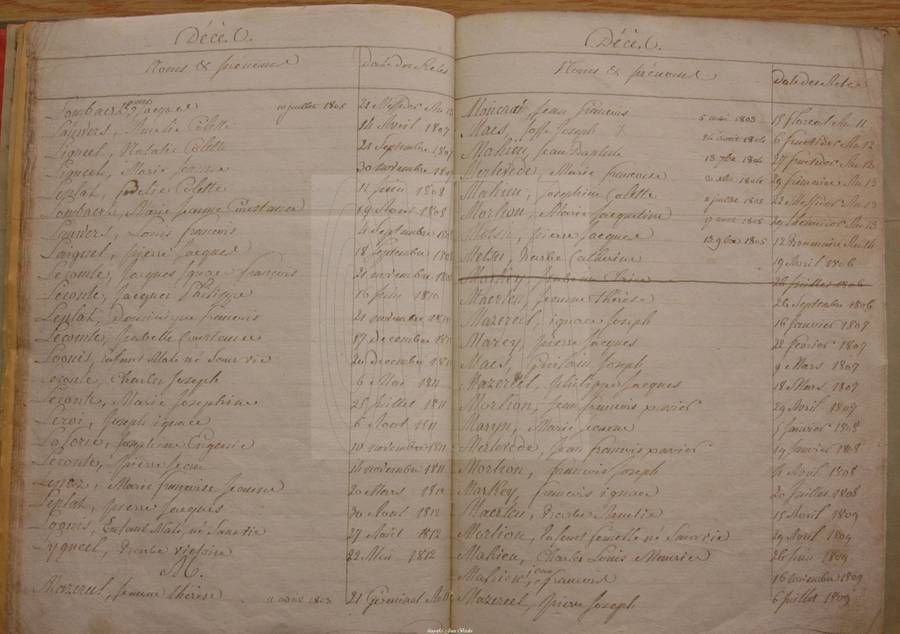 Décé.
Noms & prénoms Date des Actes
Lombaert, Jacques 10 juillet 1805 21 Messidor An 13
Lauwers, Amelie Colette 14 Avril 1807
Ligneel, Natalie Colette 21 Septembre 1807
Ligneel, Marie Jeanne 30 novembre
Leplat, Colette 11 Juin 1808
Lombaert, Marie Jeanne Constance 19 Aoust 1808
Lauwers, Louis francois 4 Septembre
Pierre Jacques 18 Septembre
Lecomte, Jacques Ignace François 21 novembre
Leconte, Jacques Philippe 16 Juin 1810
Leplat, Dominique francois 21 novembre 1810
Lecomte, Isabelle Constance 17 Decembre
Lognis, enfant Male né Sans vie 20 Decembre
Charles Joseph 6 Mai 1811
Leconte, Marie Josephine 25 Juillet 1811
Leroi, Joseph ignace 6 Aout 1811
Josephine Eugenie 10 novembre 1811
Leconte, Pierre Jean 16 novembre 1811
Marie françoise Jeanne 20 Mars 1812
Leplat, Pierre Jacques 30 Aout 1812
Lognis, Enfant Male, né Sans vie 27 Août 1812
Lygneil, Barbe victoire 22 1812
M.
Mazereel, Jeanne thérèse 11 avril 1803 21 Germinal
Décé.
Noms & prénoms Date des Actes
Jean François 5 mai 1803 15 floreal An 11
Maes, Joseph 24 aout 1804 6 fructidor An 12
Mahieu, Jean Baptiste 13 1804 27 fructidor An 12
Merlevede, Marie francoise 1804 29 frimaire An 13
Mahieu, Josephine Colette 11 juillet 1805 22 Messidor An 13
Morlion, Marie Jacqueline 17 aout 1805 29 thermidor An 13
Metsu, pierre Jacques 1805 12 Brumaire An 14
Metsu, Barbe Catherine 19 Avril 1806
Markey, 22 Juillet 1806
Maerten, Jeanne thérèse 26 Septembre 1806
Mazereel, ignace Joseph 16 Janvier 1807
Marcy, Pierre Jacques 22 février 1807
Maes, Guislain Joseph 9 Mars 1807
Mazereel, philippe Jacques 18 Mars 1807
Morlion, Jean francois xavier 29 Avril 1807
Maryn, Marie Jeanne 5 Janvier 1808
Merlevede, Jean francois xavier 19 Janvier 1808
Morlion, francois Joseph 11 Avril 1808
Markey, francois ignace 20 Juillet 1808
Maerten, Barbe Amelie 15 Avril 1809
Morlion, Enfant femelle né Sans vie 29 Avril 1809
Mahieu, Charles Louis 26 Juin 1809
Mahieu, francois 16 novembre 1809
Mazereel, Pierre Joseph 6 Juillet 1809